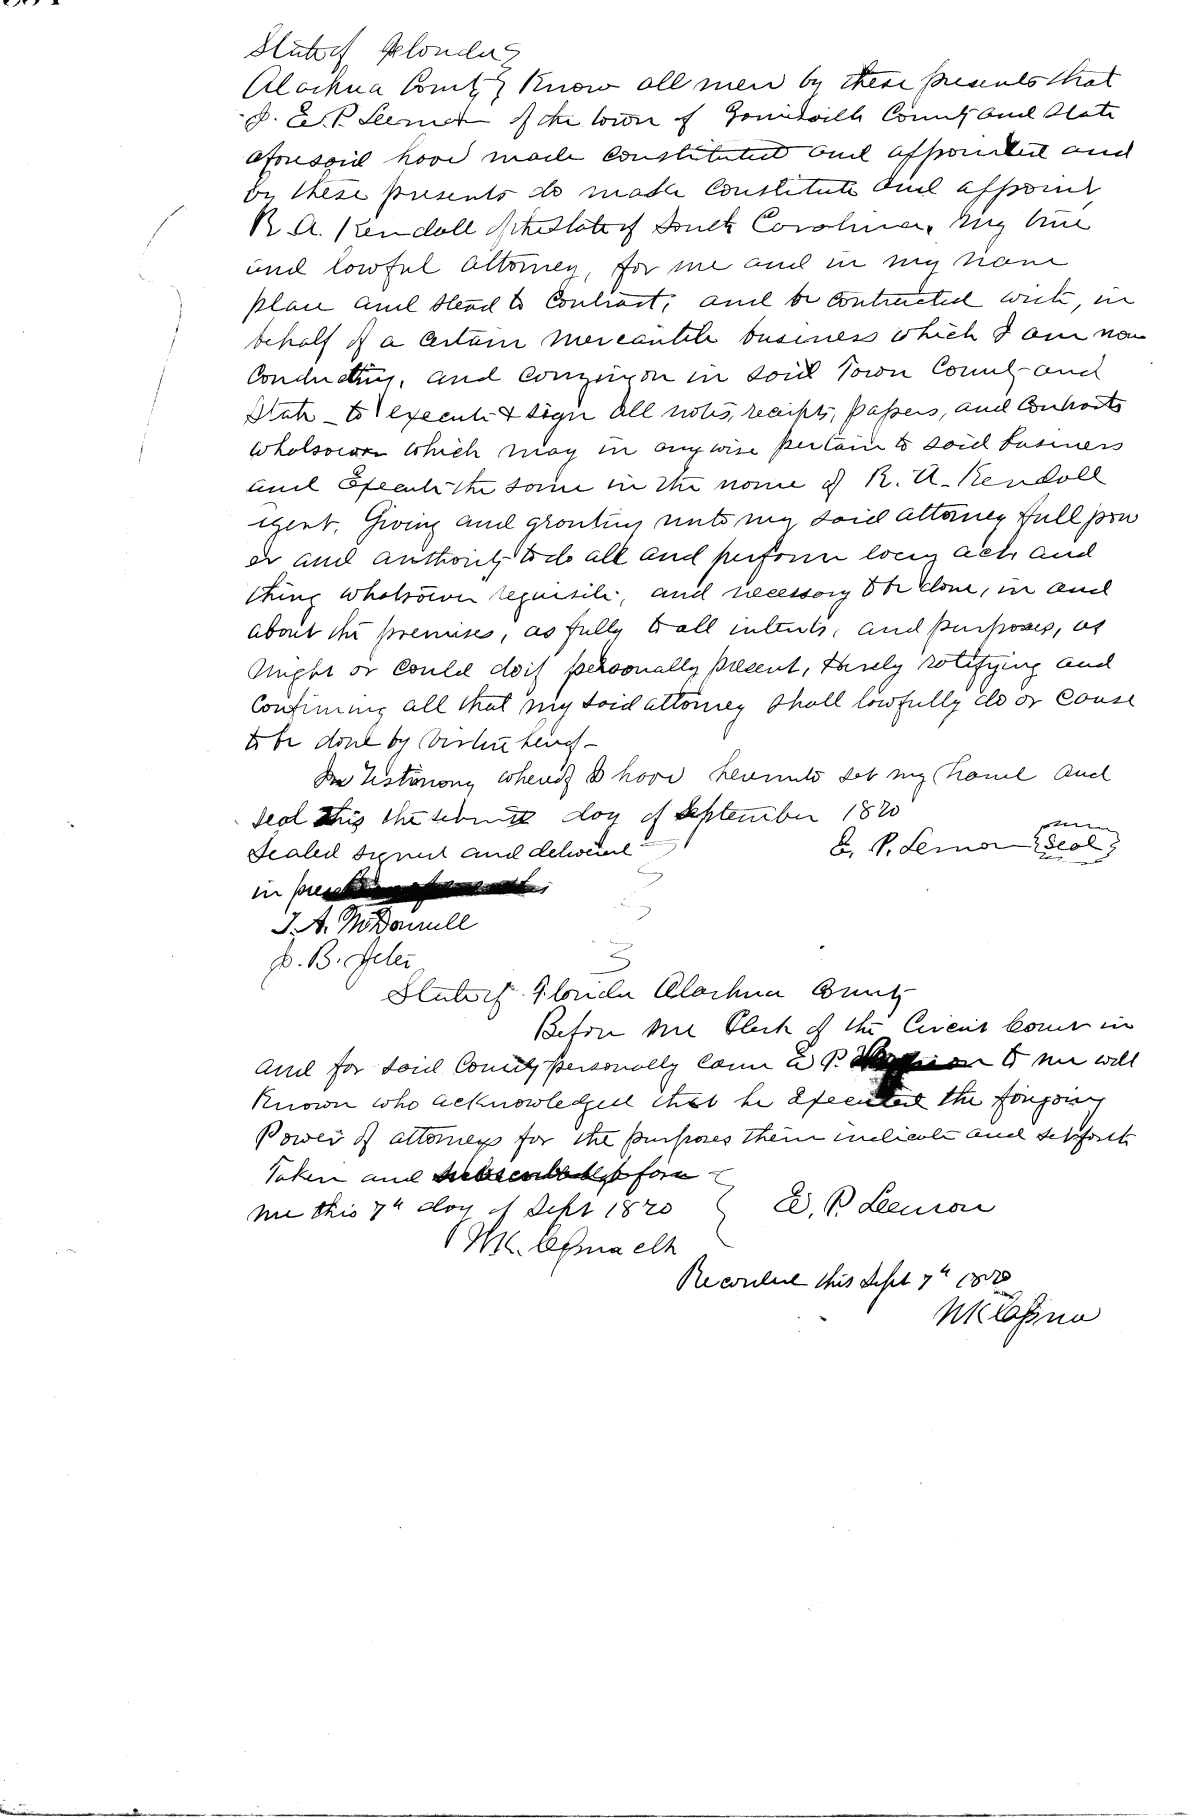 State of Florida
Alachua County Know all men by these presents that
I. E. P. Leemon of the town of Gainesville County and State
aforesaid have made constituted and appointed and
by these presents do make Constitute and appoint
R. A. Kendall of the State of South Carolina, my true
and lawful attorney, for me and in my name
place and stead to Contract, and be contracted with, in
behalf of a certain mercantile business which I am now
Conducting, and carrying on in said Town County and
State - to execute & sign all notes, receipts, papers, and Contracts
whatsoever which may in anywise pertain to said business
and Execute the same in the name of R. A. Kendall
agent. Giving and granting unto my said attorney full pow
er and authority to do all and perform every act and
thing whatsoever requisite, and necessary to be done, in and
about the premises, as fully to all intents, and purposes, as
might or could do if personally present, hereby ratifying and
Confirming all that my said attorney shall lawfully do or cause
to be done by virtue hereof -
In Testimony whereof I have hereunto set my hand and
seal this the seventh day of September 1870
Sealed signed and delivered E. P. Lemon Seal
in
J. A. McDonnell
J. B. Jeter
State of Florida Alachua County
Before me Clerk of the Circuit Court in
and for said County personally came E P. to me well
Known who acknowledged that he Executed the foregoing
Power of attorneys for the purposes therein indicate and set forth
Taken and subscribed before
me this 7th day of Sept 1870 E. P. Leemon
W. K. Cessna clk
Recorded this Sept 7th 1870
W K Cessna